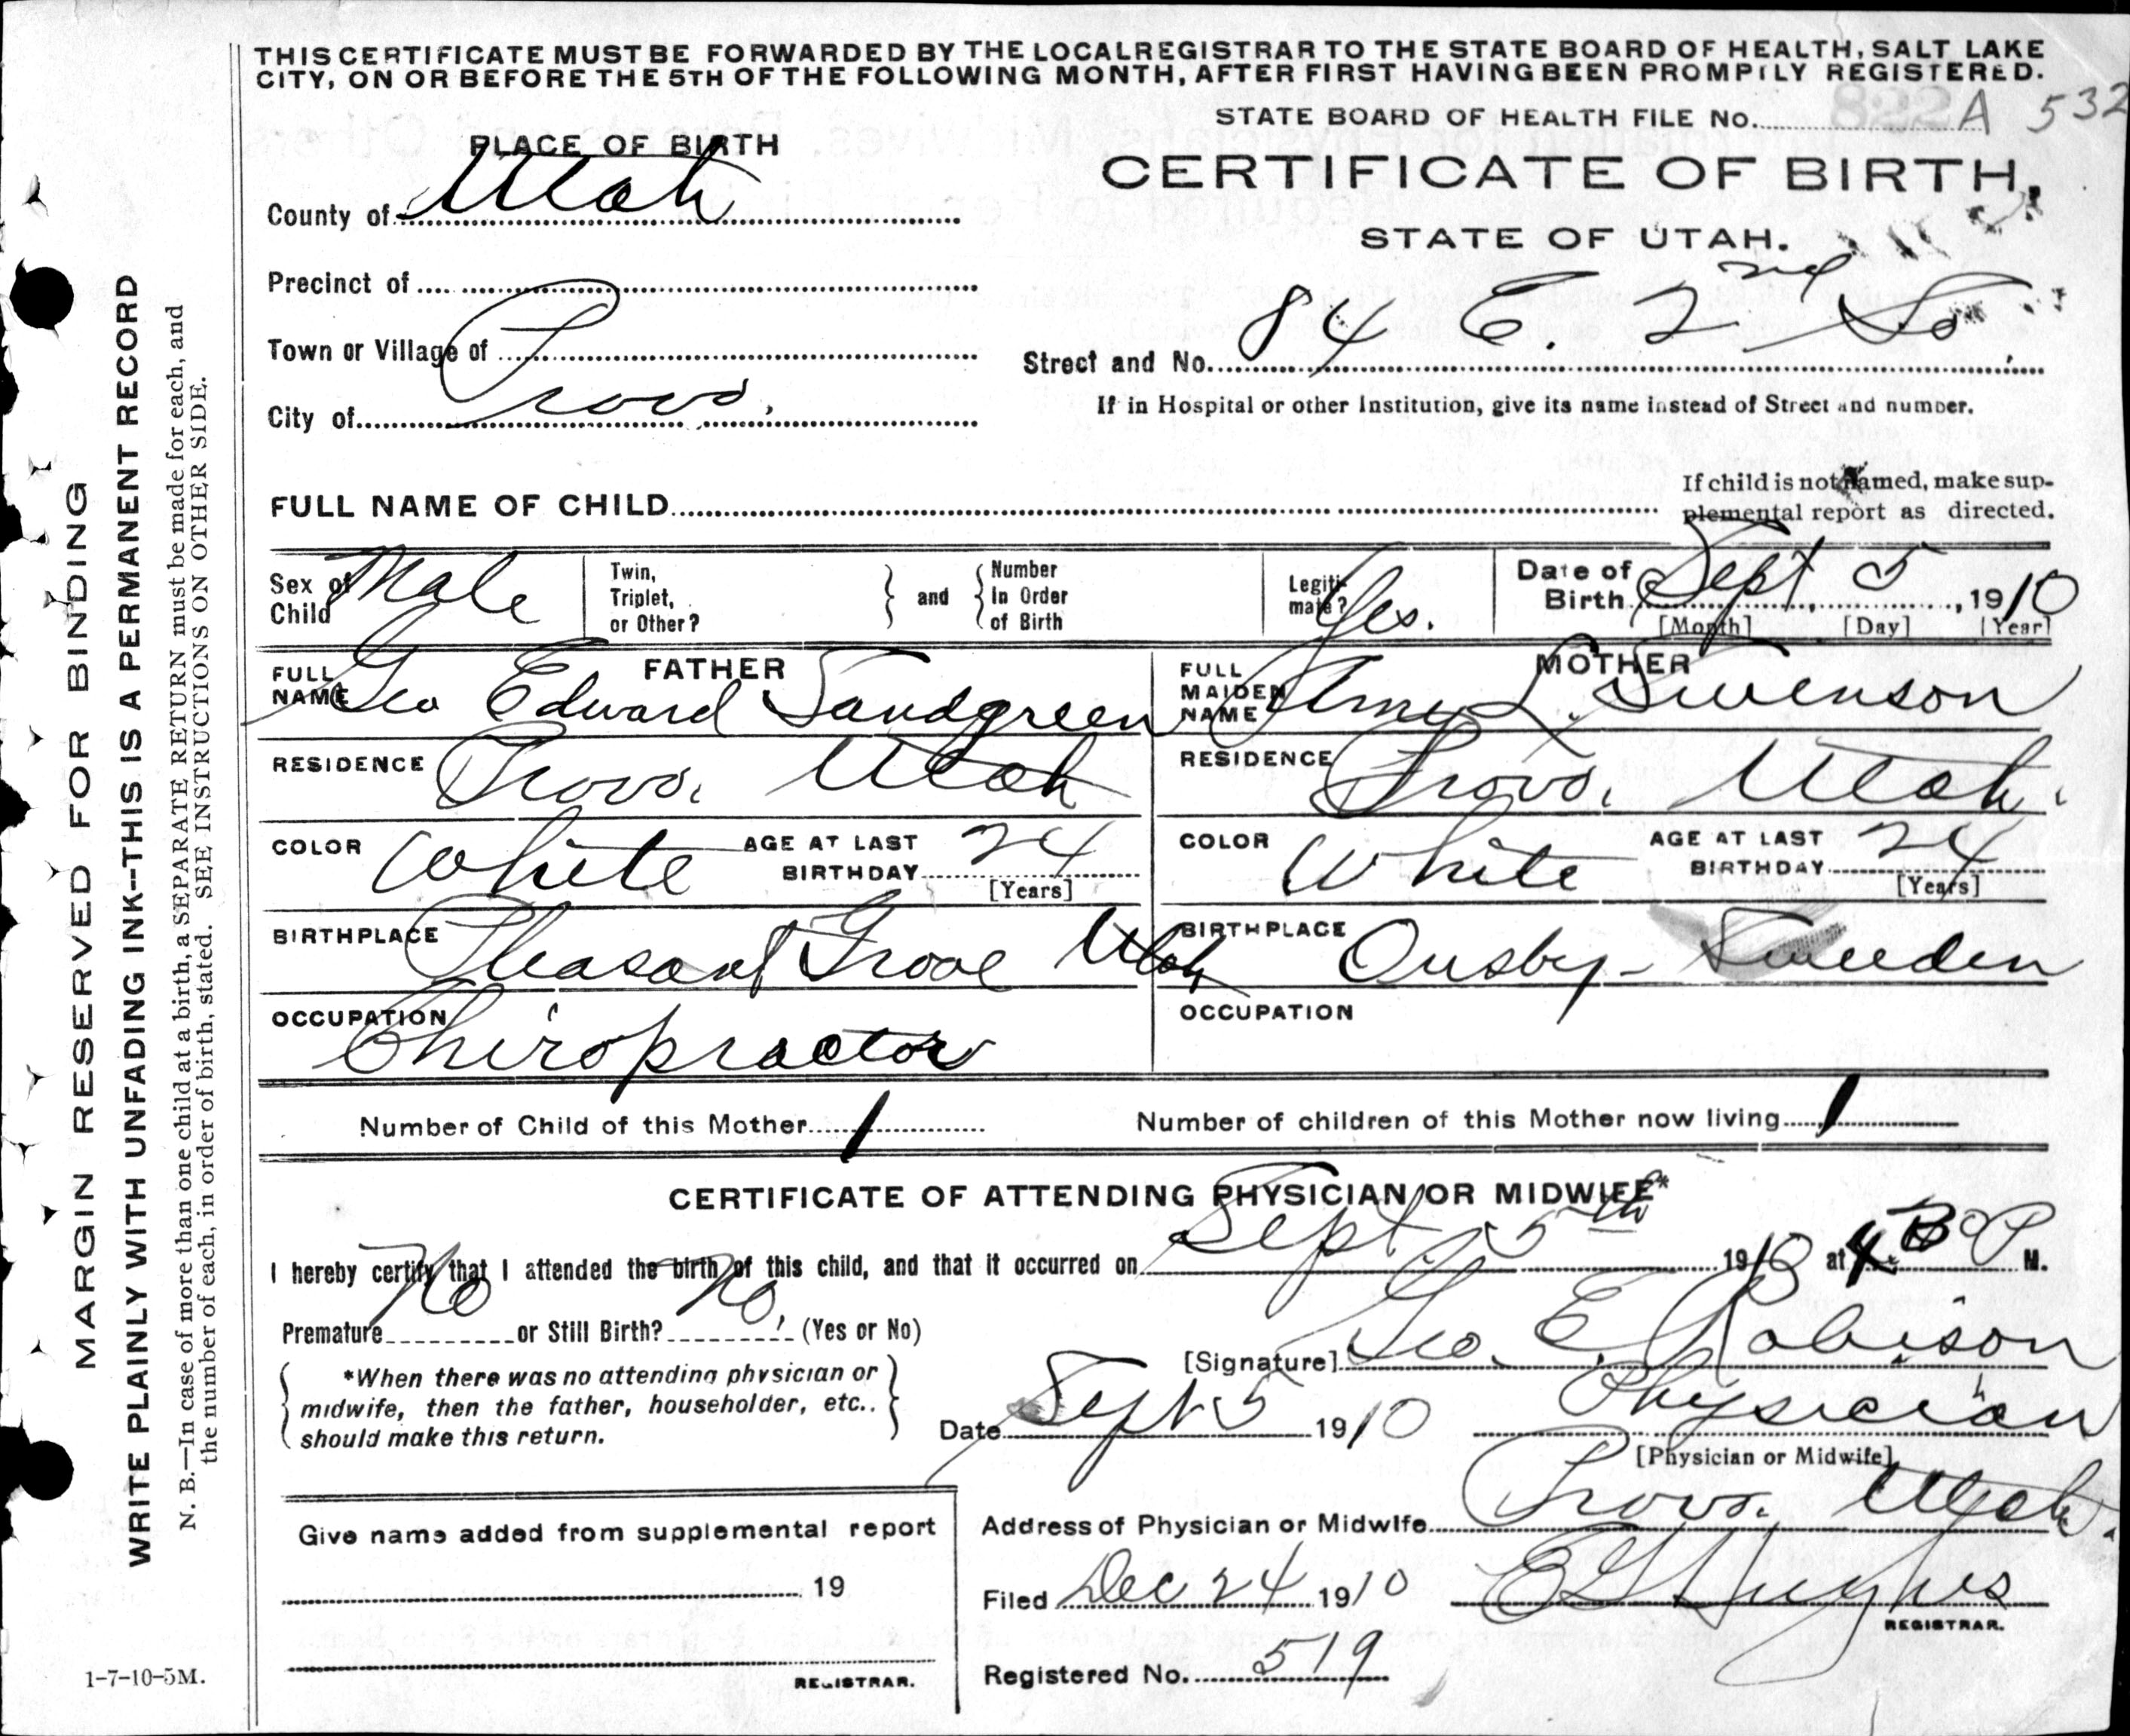 THIS CERTIFICATE MUST BE FORWARDED BY THE LOCAL REGISTRAR TO THE STATE BOARD OF HEALTH, SALT LAKE
CITY, ON OR BEFORE THE 5TH OF THE FOLLOWING MONTH, AFTER FIRST HAVING BEEN PROMPTLY REGISTERED.
STATE BOARD OF HEALTH FILE No. 822 A 532
PLACE OF BIRTH
CERTIFICATE OF BIRTH,
STATE OF UTAH.
County of Utah
Precinct of
Town or Village of
City of Provo.
Street and No. 84 E. 2nd So
If in Hospital or other Institution, give its name instead of Street and number.
FULL NAME OF CHILD
If child is not named, make sup-
plemental report as directed.
Sex of Child Male
Twin, Triplet, or Other? and Number In Order of Birth
Legiti- mate? Yes.
Date of Birth Sept 5, 1910
[Month] [Day] [Year]
FATHER
FULL NAME Geo Edward Sandgreen
RESIDENCE Provo, Utah
COLOR White AGE AT LAST BIRTHDAY 24 [Years]
BIRTHPLACE Pleasant Grove Utah
OCCUPATION Chiropractor
MOTHER
FULL MAIDEN NAME Amy L. Swenson
RESIDENCE Provo, Utah.
COLOR White AGE AT LAST BIRTHDAY 24 [Years]
BIRTHPLACE Ousby - Sweden
OCCUPATION
Number of Child of this Mother 1
Number of children of this Mother now living 1
CERTIFICATE OF ATTENDING PHYSICIAN OR MIDWIFE*
I hereby certify that I attended the birth of this child, and that it occurred on Sept 5th 1910 at 4 P M.
Premature No or Still Birth? No. (Yes or No)
*When there was no attending physician or
midwife, then the father, householder, etc..
should make this return.
[Signature] Geo. E. Robison
Date Sept 5 1910
Physician
[Physician or Midwife]
Address of Physician or Midwife Provo. Utah.
Filed Dec 24 1910 E G Hughes
REGISTRAR.
Registered No. 519
Give name added from supplemental report
19
REGISTRAR.
MARGIN RESERVED FOR BINDING
WRITE PLAINLY WITH UNFADING INK--THIS IS A PERMANENT RECORD
N. B.—In case of more than one child at a birth, a SEPARATE RETURN must be made for each, and
the number of each, in order of birth, stated. SEE INSTRUCTIONS ON OTHER SIDE.
1-7-10-5M.